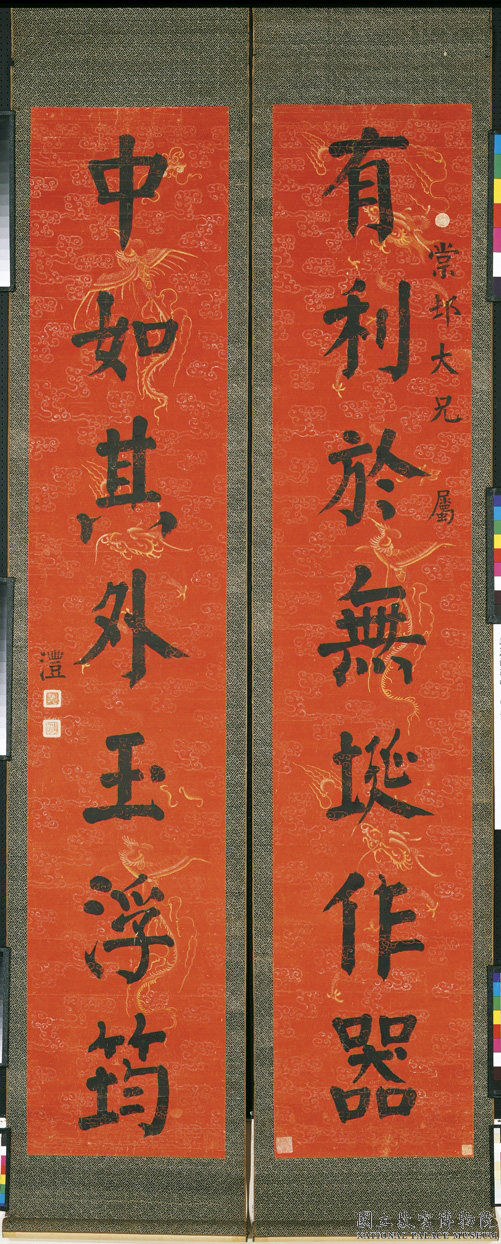 有利於無埏作器
棠邨大兄 屬
中如其外玉浮筠
澧
國立故宮博物院
NATIONAL PALACE MUSEUM